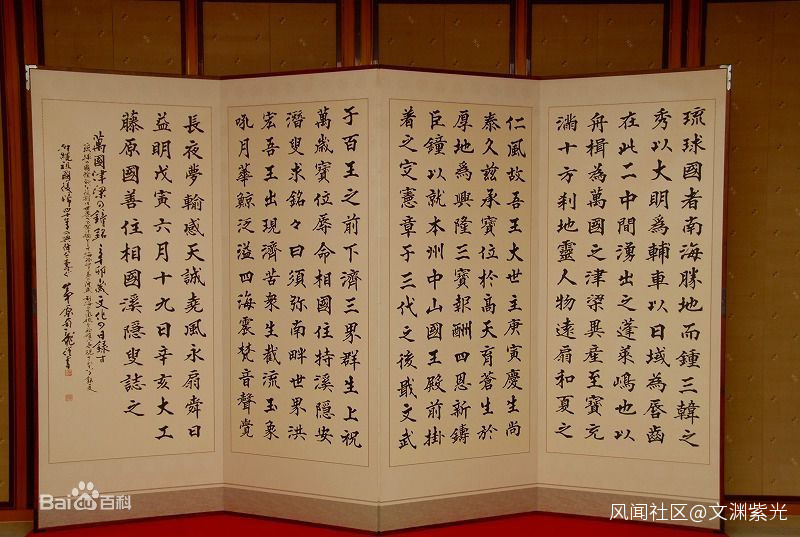 琉球國者南海勝地而鍾三韓之
秀以大明爲輔車以日域為唇齒
在此二中間湧出之蓬萊嶋也以
舟楫為萬國之津梁異產至寶充
滿十方刹地靈人物遠扇和夏之
仁風故吾王大世主庚寅慶生尚
泰久茲承寶位於高天育蒼生於
厚地為興隆三寶報酬四恩新鑄
巨鐘以就本州中山國王殿前掛
著之定憲章于三代之後戢文武
于百王之前下濟三界群生上祝
萬歲寶位辱命相國住持溪隱安
潛叟求銘々曰須弥南畔世界洪
宏吾王出現濟苦衆生截流玉象
吼月華鯨泛溢四海震梵音聲覺
長夜夢輸感天誠堯風永扇舜日
益明戊寅六月十九日辛亥大工
藤原國善住相國溪隱叟誌之
萬國津梁の鐘銘 辛卯歲文化の日錄す
Bai百科
风闻社区@文渊紫光